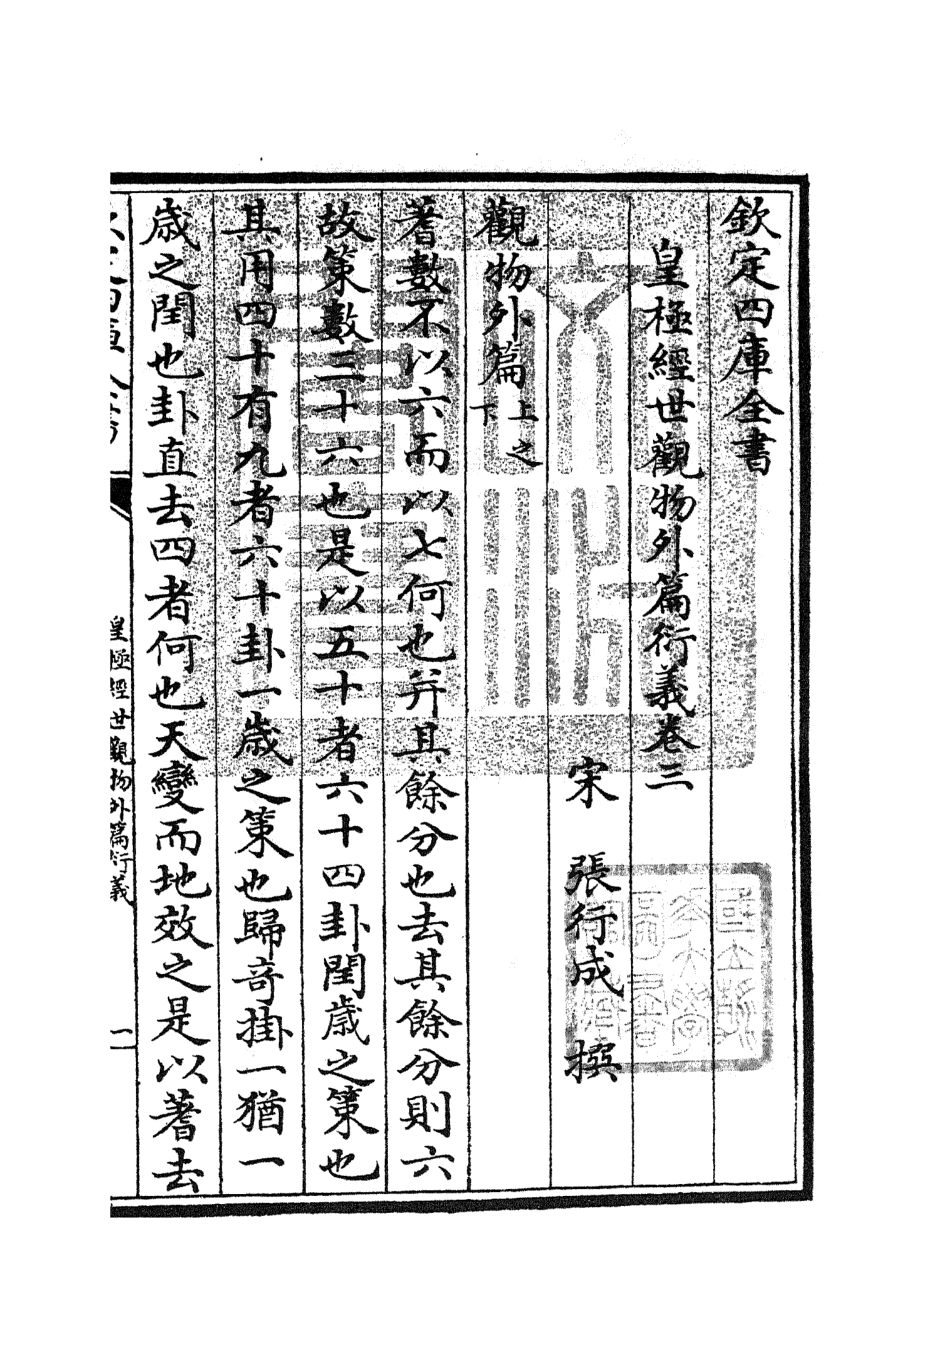 欽定四庫全書
皇極經世觀物外篇衍義卷三
宋　張行成　撰
觀物外篇上之下
蓍數不以六而以七何也并其餘分也去其餘分則六
故策數三十六也是以五十者六十四卦閏歲之策也
其用四十有九者六十卦一歲之策也歸奇掛一猶一
歲之閏也卦直去四者何也天變而地效之是以蓍去
皇極經世觀物外篇衍義
一